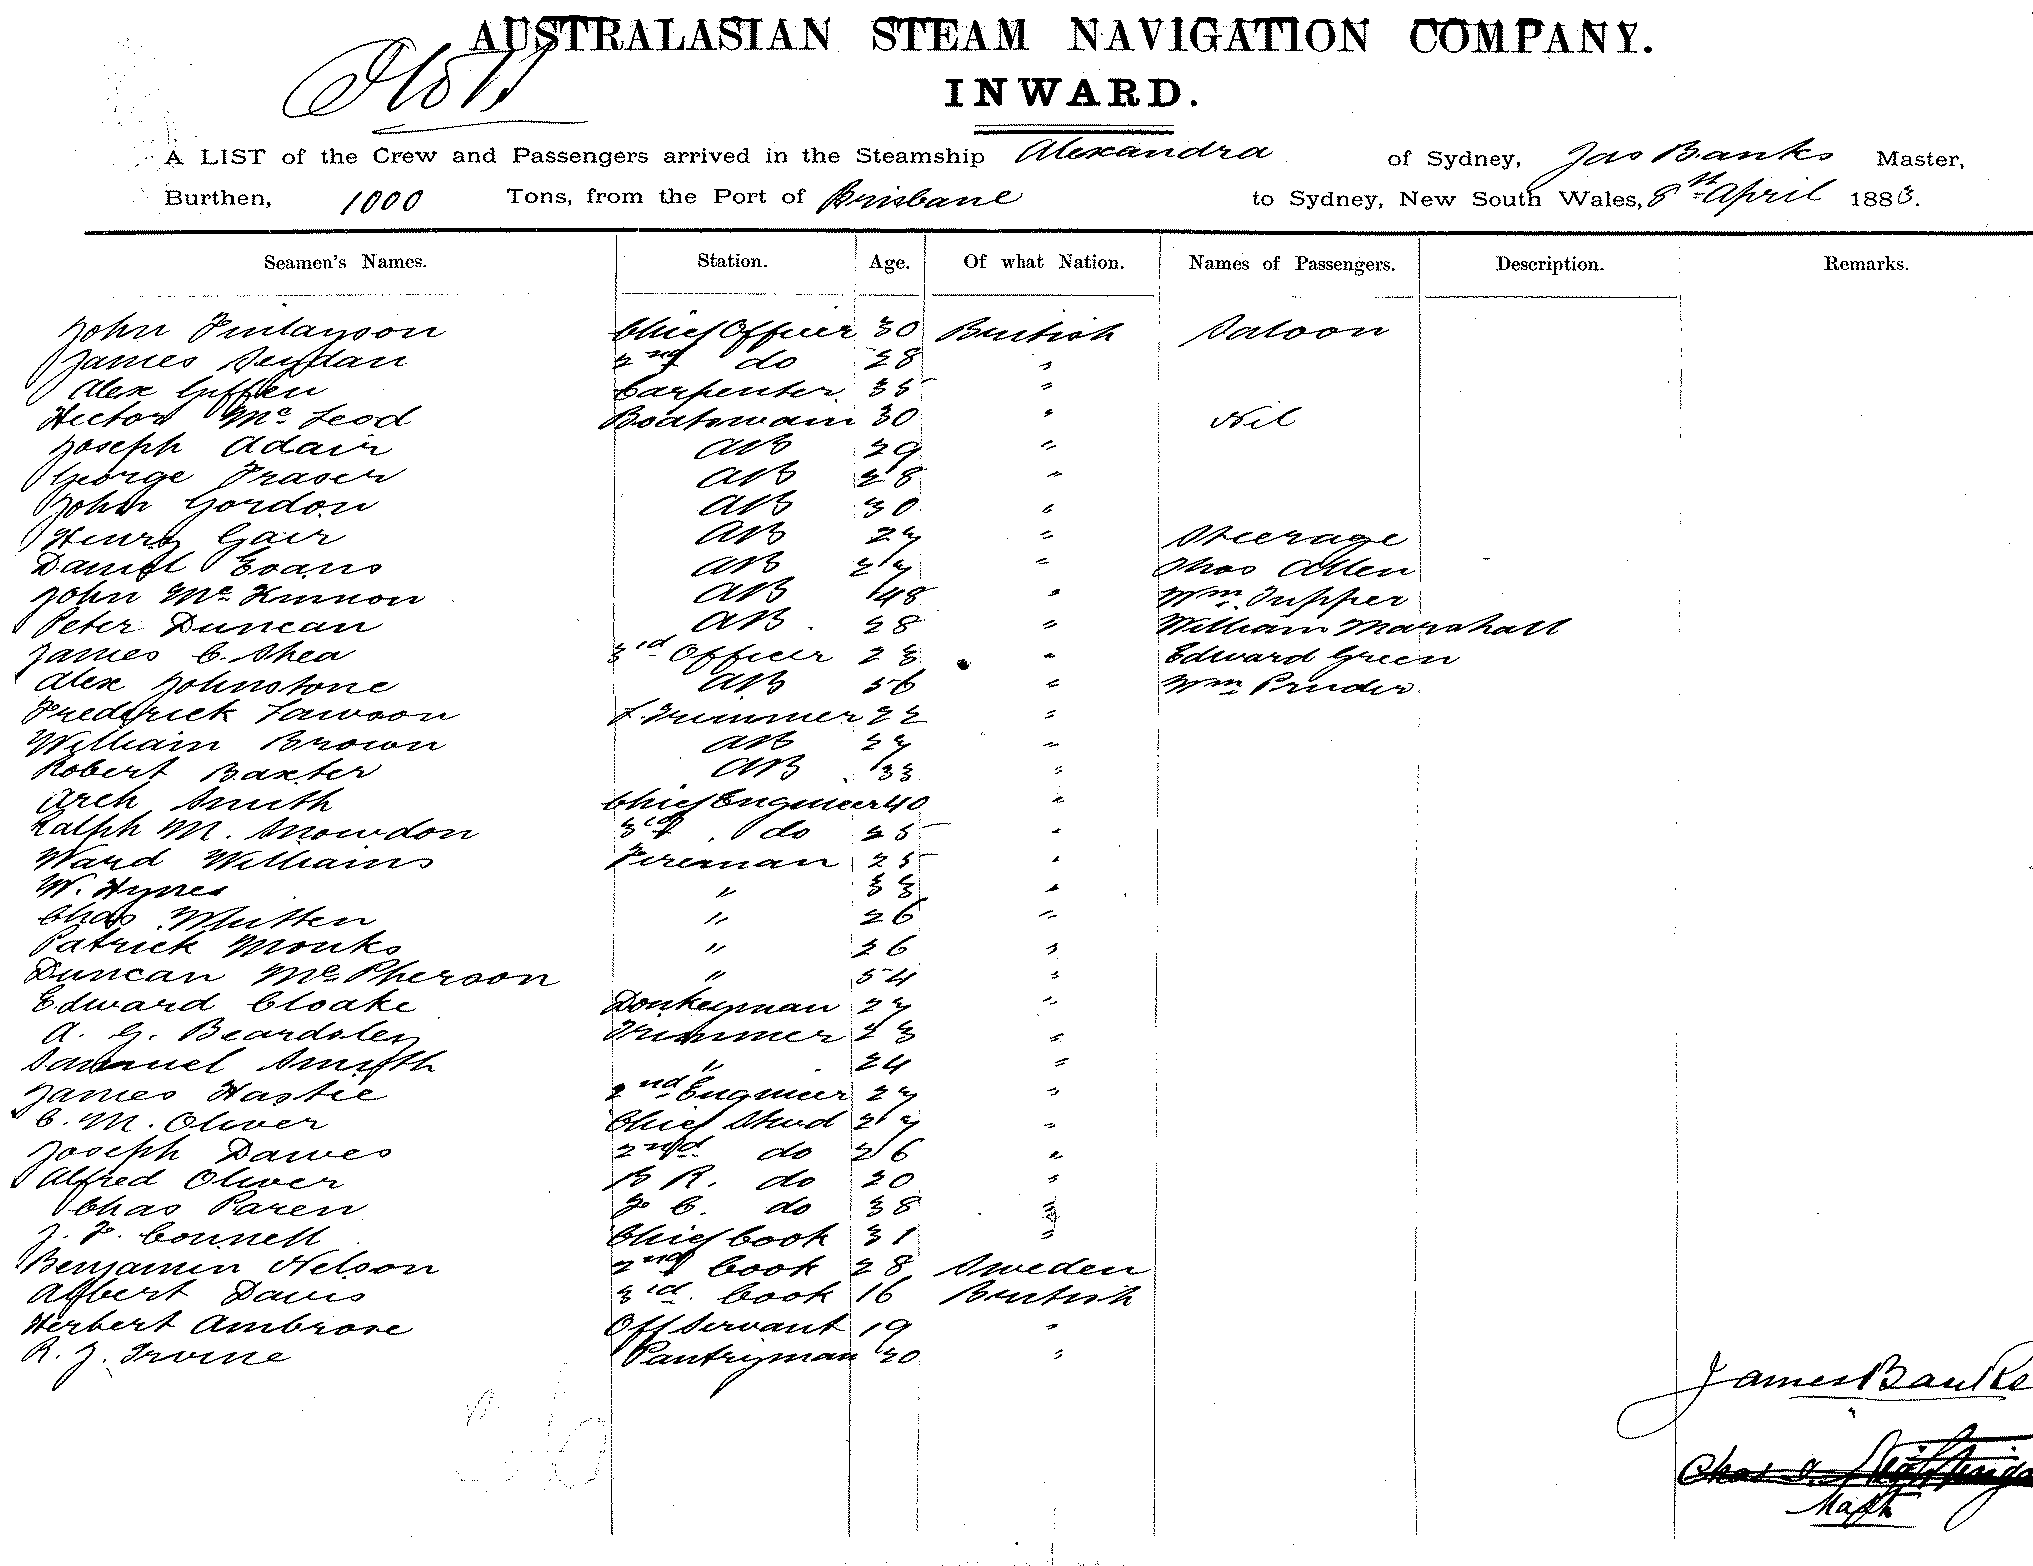 AUSTRALASIAN STEAM NAVIGATION COMPANY.
INWARD.
A LIST of the Crew and Passengers arrived in the Steamship Alexandra of Sydney, Jas Banks Master,
Burthen, 1000 Tons, from the Port of Brisbane to Sydney, New South Wales, 8th April 1883.
Seamen's Names. Station. Age. Of what Nation. Names of Passengers. Description. Remarks.
John Finlayson Chief Officer 30 British Saloon
James 2nd do 28 "
Alex Giffen Carpenter 35 "
Hector McLeod Boatswain 30 " Nil
Joseph Adair AB 29 "
George Fraser AB 28 "
John Gordon AB 30 "
Henry Gair AB 27 " Steerage
Daniel Evans AB 27 " Thos Allen
John McKinnon AB 48 " Wm. Tupper
Peter Duncan AB 28 " William Marshall
James C. Shea 3rd Officer 23 " Edward Green
Alex Johnstone AB 56 " Wm Pruder
Frederick Lawson L. Trimmer 22 "
William Brown AB 27 "
Robert Baxter AB 33 "
Arch Smith Chief Engineer 40 "
Ralph M. Snowdon 3rd do 25 "
Ward Williams Fireman 25 "
W. Hynes " 33 "
Chas Mutten " 26 "
Patrick Monks " 26 "
Duncan McPherson " 54 "
Edward Cloake Donkeyman 27 "
A. G. Beardsley Trimmer 23 "
Samuel Smith " 24 "
James Hastie 2nd Engineer 27 "
C. M. Oliver Chief Stwd 27 "
Joseph Dawes 2nd do 26 "
Alfred Oliver B R. do 20 "
Chas Paren F C. do 38 "
J. F. Connell Chief Cook 31 "
Benjamin Nelson 2nd Cook 28 Sweden
Albert Davis 3rd. Cook 16 British
Herbert Ambrose Off Servant 19 "
R. J. Irvine Pantryman 20 "
James Banks
Chas